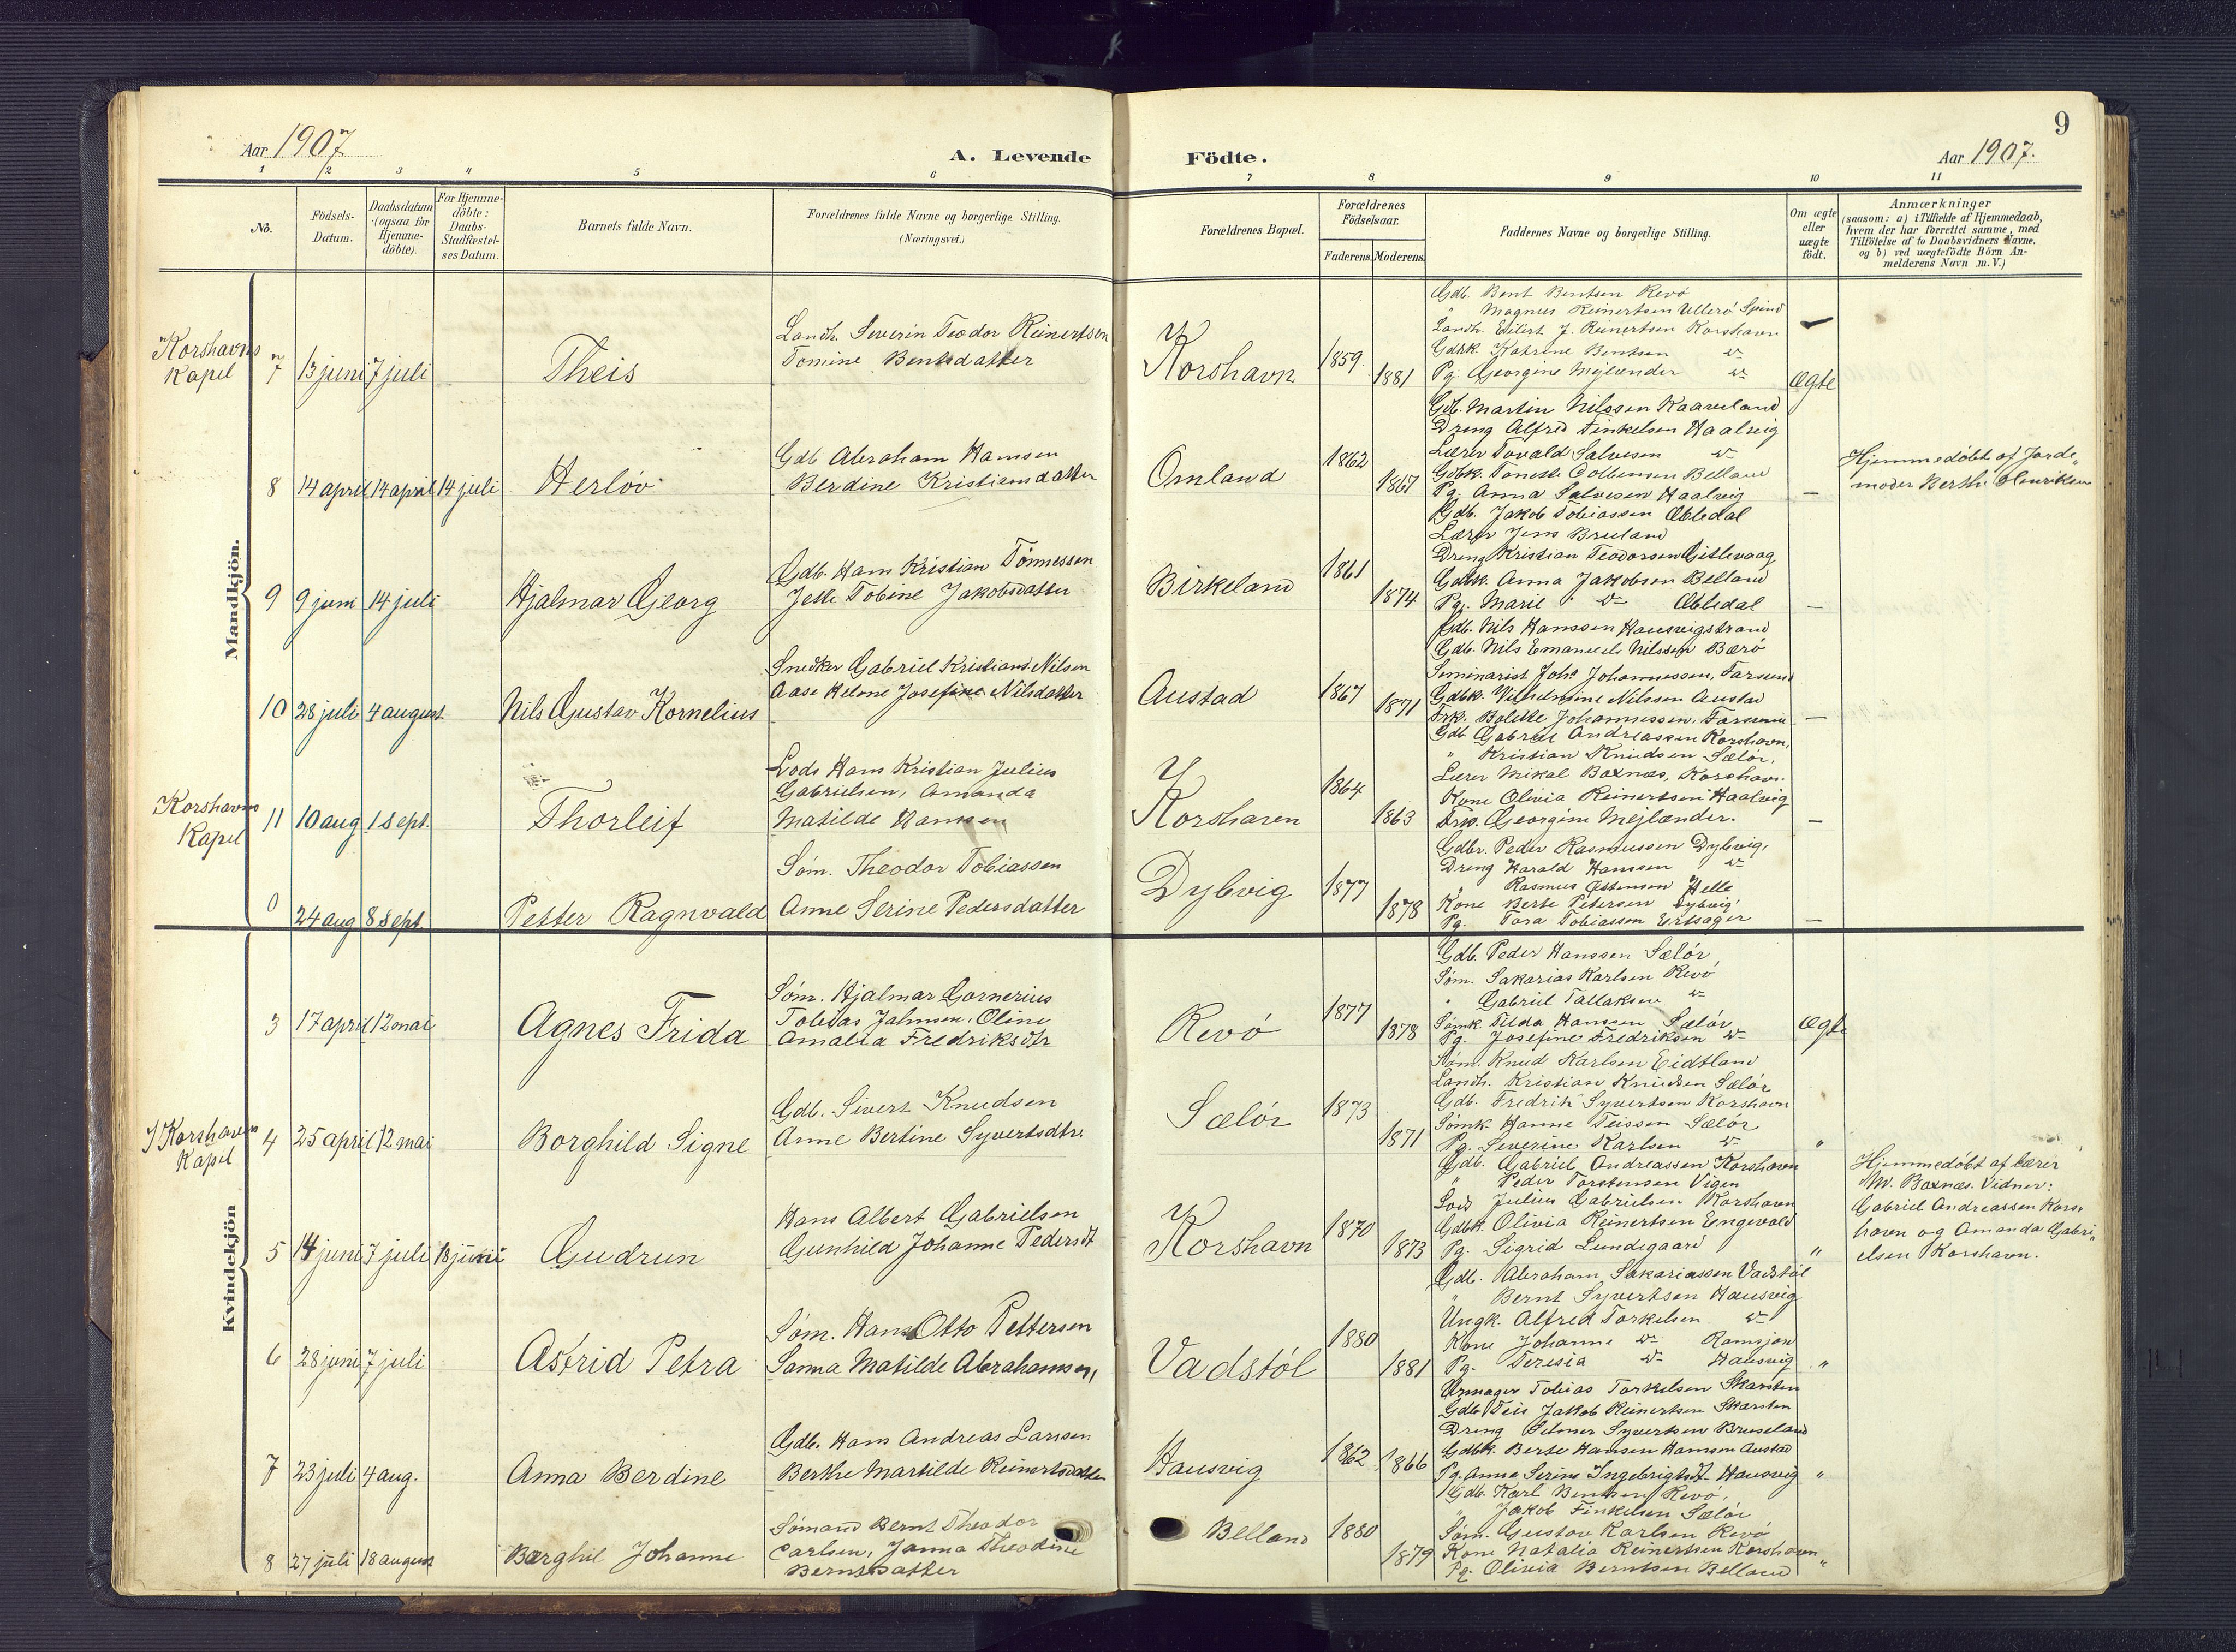 9
Aar 1907
A. Levende
Födte.
Aar 1907.
1 2 3 4 5 6 7 8 9 10 11
No.
Födsels-Datum.
Daabsdatum (ogsaa for Hjemme-döbte).
For Hjemme-döbte: Daabs-Stadfæstel-ses Datum.
Barnets fulde Navn.
Forældrenes fulde Navne og borgerlige Stilling.
(Næringsvei.)
Forældrenes Bopæl.
Forældrenes Födselsaar.
Faderens. Moderens.
Faddernes Navne og borgerlige Stilling.
Om ægte eller uægte födt.
Anmærkninger
(saasom: a) i Tilfælde af Hjemmedaab,
hvem der har forrettet samme, med
Tilföielse af to Daabsvidners Navne.
og b) ved uægtefödte Börn An-
melderens Navn m. V.)
Mandkjön.
Korshavns
Kapel
7 13 juni 7 juli
Theis
Landh. Severin Teodor Reinertsen
Tomine Bentsdatter
Korshavn
1859
1881
Gdb. Bent Bentsen Revø
" Magnus Reinertsen Ullerø Spind
Landh. Eilert J. Reinertsen Korshavn
Gdbk. Katrine Bentsen
Pg. Georgine Mejlænder
Ægte
8 14 april 14 april 14 juli
Herløv
Gdb Abraham Hansen
Berdine Kristiansdatter
Omland
1862
1867
Gdb. Martin Nilssen Kaareland
Dreng Alfred Finkelsen Haalvig
Lærer Tovald Salvesen
Gdbk. Tonette Belland
Pg. Anna Salvesen Haalvig
Hjemmedøbt af Jorde„
moder Berthe Henriksen
9 9 juni 14 juli
Hjalmar Georg
Gdb. Hans Kristian Tønnessen
Jette Tobine Jakobsdatter
Birkeland
1861
1874
Gdb. Jakob Tobiassen Æbledal
Lærer Jens Brueland
Dreng Kristian Teodorsen Gitlevaag
Gdbk. Anna Jakobsen Belland
Pg. Marie Æbledal
10 28 juli 4 august
Nils Gustav Kornelius
Snedker Gabriel Kristians Nilsen
Aase Helene Josefine Nilsdatter
Austad
1867
1871
Gdb. Nils Hanssen Hausvigstrand
Gdb. Nils Emanuels Nilssen Bærø
Seminarist Johs Johannessen, Farsund
Gdbk. Vilhelmine Nilssen Austad
Frk. Bolette Johannessen, Farsund
Korshavns
Kapel
11 10 aug 1 sept.
Thorleif
Lods Hans Kristian Julius
Gabrielsen, Amanda
Matilde Hansen
Korshavn
1864
1863
Gdb Gabriel Andreassen Korshavn,
" Kristian Knudsen Sælør,
Lærer Mikal Boxnæs, Korshavn.
Kone Olivia Reinertsen Haalvig
Frk. Georgine Mejlænder.
0 24 aug 8 sept.
Petter Ragnvald
Søm. Theodor Tobiassen
Anne Serine Pedersdatter
Dybvig
1877
1878
Gdbr. Peder Rasmussen Dybvig,
Dreng Harald Hanssen
" Rasmus Østensen Helle
Kone Berte Petersen Dybvig
Pg. Tora Tobiassen Ertsager
Kvindekjön
3 17 april 12 mai
Agnes Frida
Søm. Hjalmar Cornerius
Tobias Jahnsen, Oline
Amalia Fredriksdtr
Revø
1877
1878
Gdb. Peder Hanssen Sælør,
Søm. Sakarias Karlsen Revø
" Gabriel Tallaksen
Sømk. Tilda Hanssen Sælør
Pg. Josefine Fredriksen
Ægte
I Korshavns
Kapel
4 25 april 12 mai
Borghild Signe
Gdb. Sivert Knudsen
Anne Bertine Syvertsdtr.
Sælør
1873
1871
Søm. Knud Karlsen Eidtland
Landh. Kristian Knudsen Sælør
Gdb. Fredrik Syvertsen Korshavn
Sømk. Hanne Teissen Sælør
Pg. Severine Karlsen
"
5 14 juni 7 juli 18 juni
Gudrun
Hans Albert Gabrielsen
Gunhild Johanne Pedersdt
Korshavn
1870
1873
Gdb. Gabriel Andreassen Korshavn
" Peder Torstensen Vigen
Lods Julius Gabrielsen Korshavn
Gdbk. Olivia Reinertsen Engevold
Pg. Sigrid Lundegaard
"
Hjemmedøbt af lærer
M. Boxnæs. Vidner:
Gabriel Andreassen Kors„
havn og Amanda Gabri„
elsen Korshavn.
6 28 juni 7 juli
Astrid Petra
Søm. Hans Otto Pettersen
Sanna Matilde Abrahamsen,
Vadstøl
1880
1881
Gdb. Abraham Sakariassen Vadstøl
" Bernt Syvertsen Hausvig
Ungk. Alfred Torkelsen
Kone Johanne Ramsjon
Pg. Teresia Hausvig
"
7 23 juli 4 aug.
Anna Berdine
Gdb. Hans Andreas Larsen
Berthe Martilde Reinertsdatter
Hausvig
1862
1866
Urmager Tobias Torkelsen Skarsten
Gdb. Teis Jakob Reinertsen Skarsten
Dreng Selmer Syvertsen Bruseland
Gdbk. Berte Hansen Hansen Austad
Pg. Anne Serine Ingebrigtsdt Hausvig
"
8 27 juli 18 august
Børghil Johanne
Sømand Bernt Theodor
Carlsen, Janna Theodine
Berntsdatter
Belland
1880
1879
Gdb. Karl Bentsen Revø,
" Jakob Finkelsen Sælør
Søm. Gustav Karlsen Revø
Kone Natalia Reinertsen Korshavn
Pg. Olivia Berntsen Belland
"